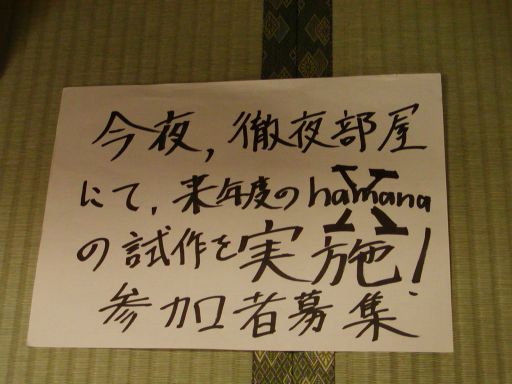 今夜,徹夜部屋
にて,来年度のhamana
の試作を実施!
参加者募集